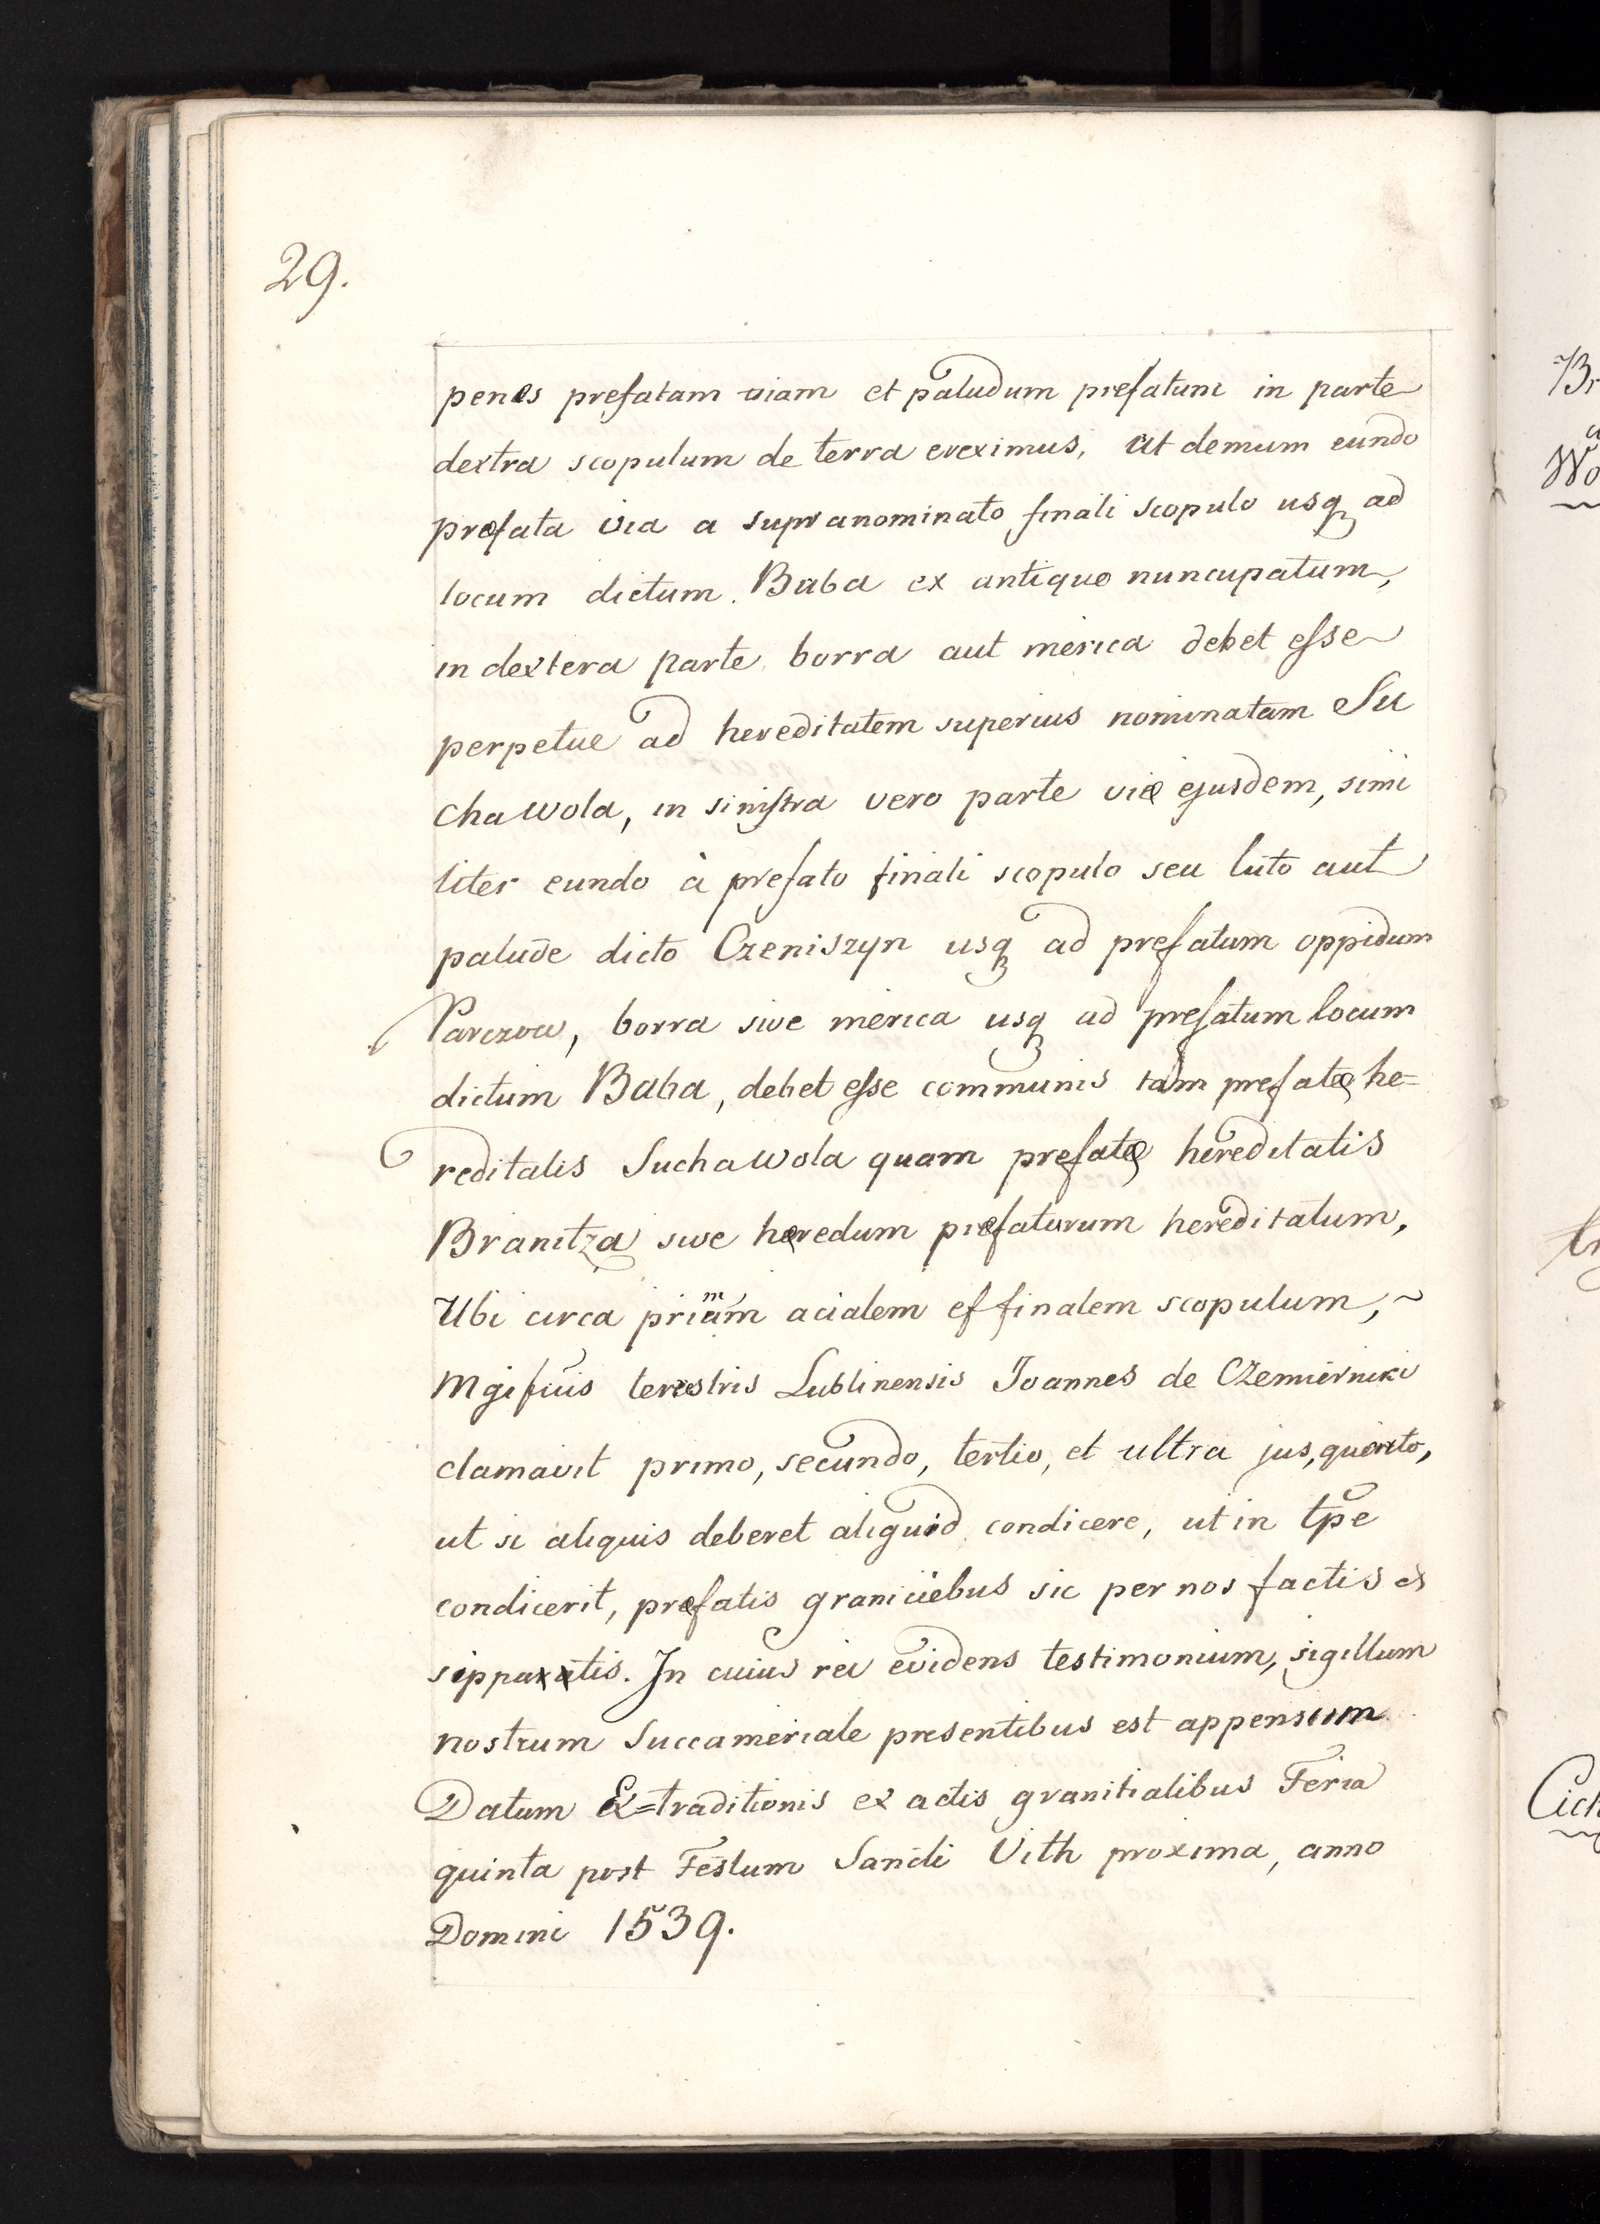 29.
penes prefatam viam et paludum prefatum in parte
dextra scopulum de terra ereximus, ut demum eundo
præfata via a supranominato finali scopulo usqꝫ ad
locum dictum Baba ex antiquo nuncupatum,
in dextera parte borra aut merica debet esse
perpetue ad hereditatem superius nominatam Su
cha Wola, in sinistra vero parte viæ ejusdem, simi
liter eundo à prefato finali scopulo seu luto aut
palude dicto Czeniszyn usqꝫ ad prefatum oppidum
Parczow, borra sive merica usqꝫ ad prefatum locum
dictum Baba, debet esse communis tam prefatæ he=
reditatis Sucha Wola quam prefatæ hereditatis
Branitza sive hæredum præfatorum hereditatum,
Ubi circa priam acialem et finalem scopulum,
terrestris Lublinensis Joannes de Czemierniki
clamavit primo, secundo, tertio, et ultra jus, quarto,
ut si aliquis deberet aliquid condicere, ut in tp̃e
condicerit, præfatis graniciebus sic per nos factis et
. In cuius rei evidens testimonium, sigillum
nostrum Succameriale presentibus est appensum
Datum Ex=traditionis ex actis granitialibus Feria
quinta post Festum Sancti Vith proxima, anno
Domini 1539.
Br
Wo
Cich